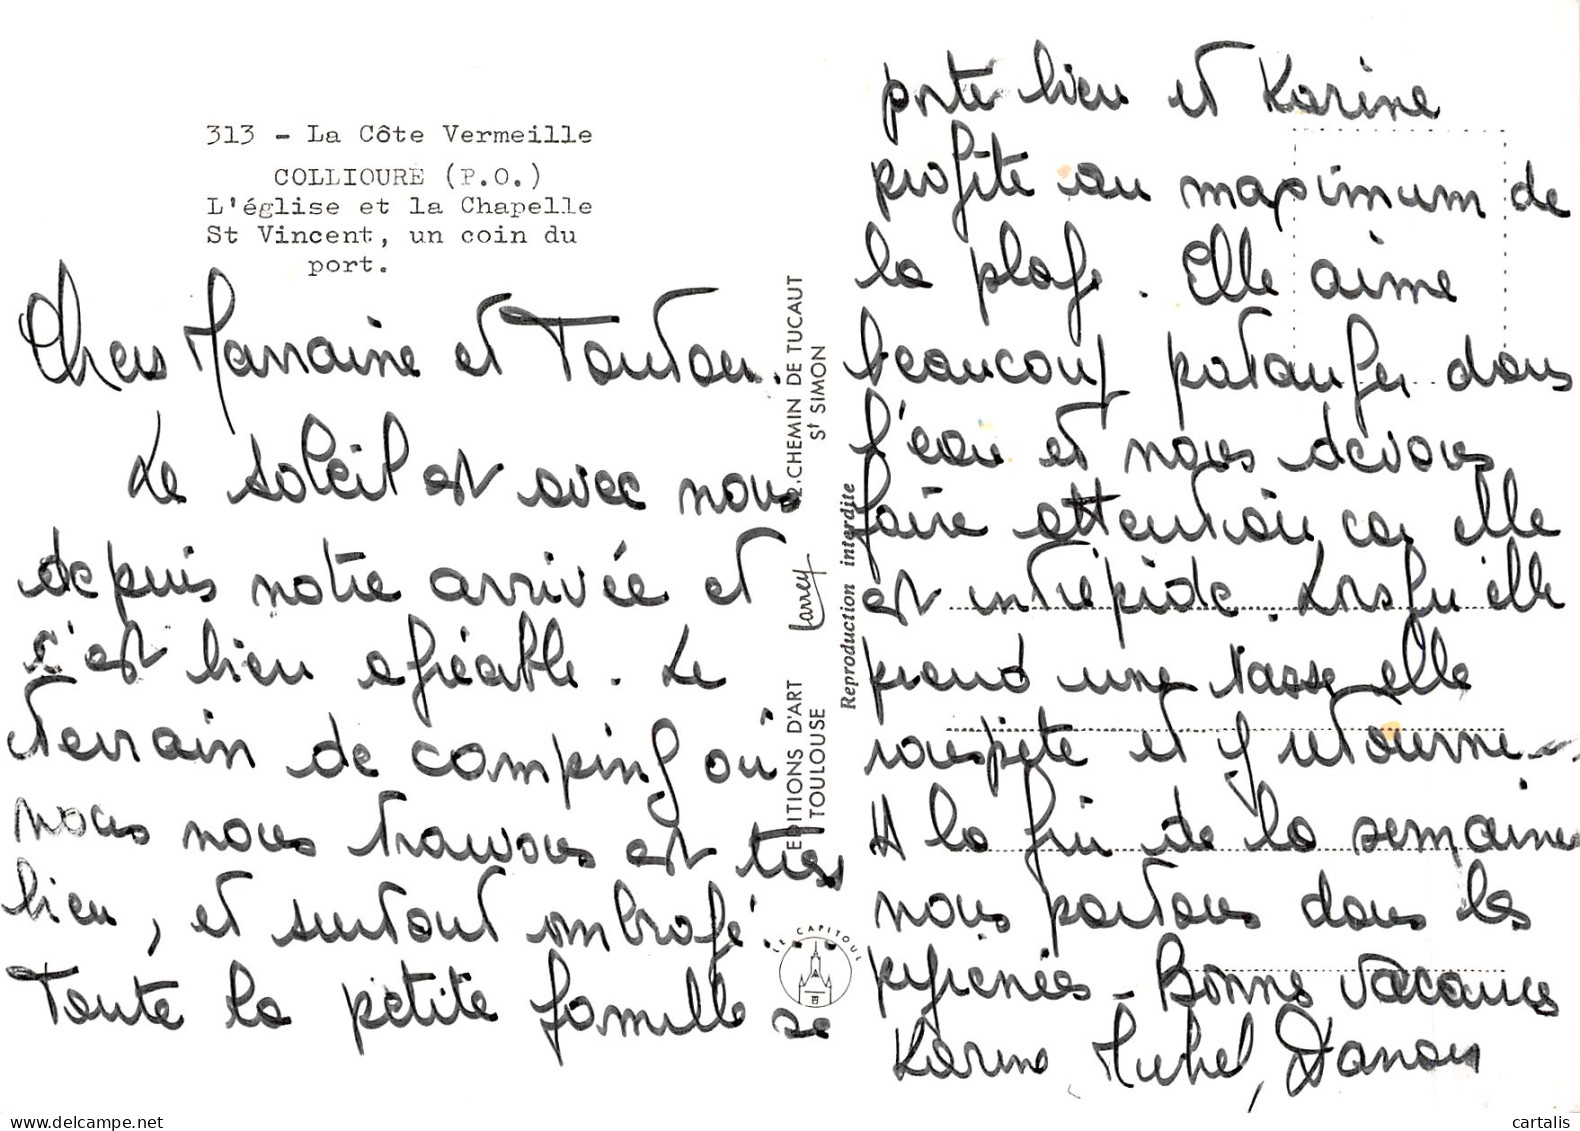 313 - La Côte Vermeille
COLLIOURE (P.O.)
L'église et la Chapelle
St Vincent, un coin du
port.
Chers Marraine et Tonton.
Le soleil est avec nous
depuis notre arrivée et
c'est bien agréable. Le
terrain de camping où
nous nous trouvons est très
bien, et surtout ombragé.
Toute la petite famille se
EDITIONS D'ART Larrey 12, CHEMIN DE TUCAUT
TOULOUSE St SIMON
Reproduction interdite
LE CAPITOUL
porte bien et Karine
profite au maximum de
la plage. Elle aime
beaucoup patauger dans
l'eau et nous devons
faire attention car elle
est intrépide. Lorsqu'elle
prend une tasse elle
rouspète et y retourne
A la fin de la semaine
nous partons dans les
pyrénées - Bonnes vacances
Karine, Michel,
www.delcampe.net
cartalis